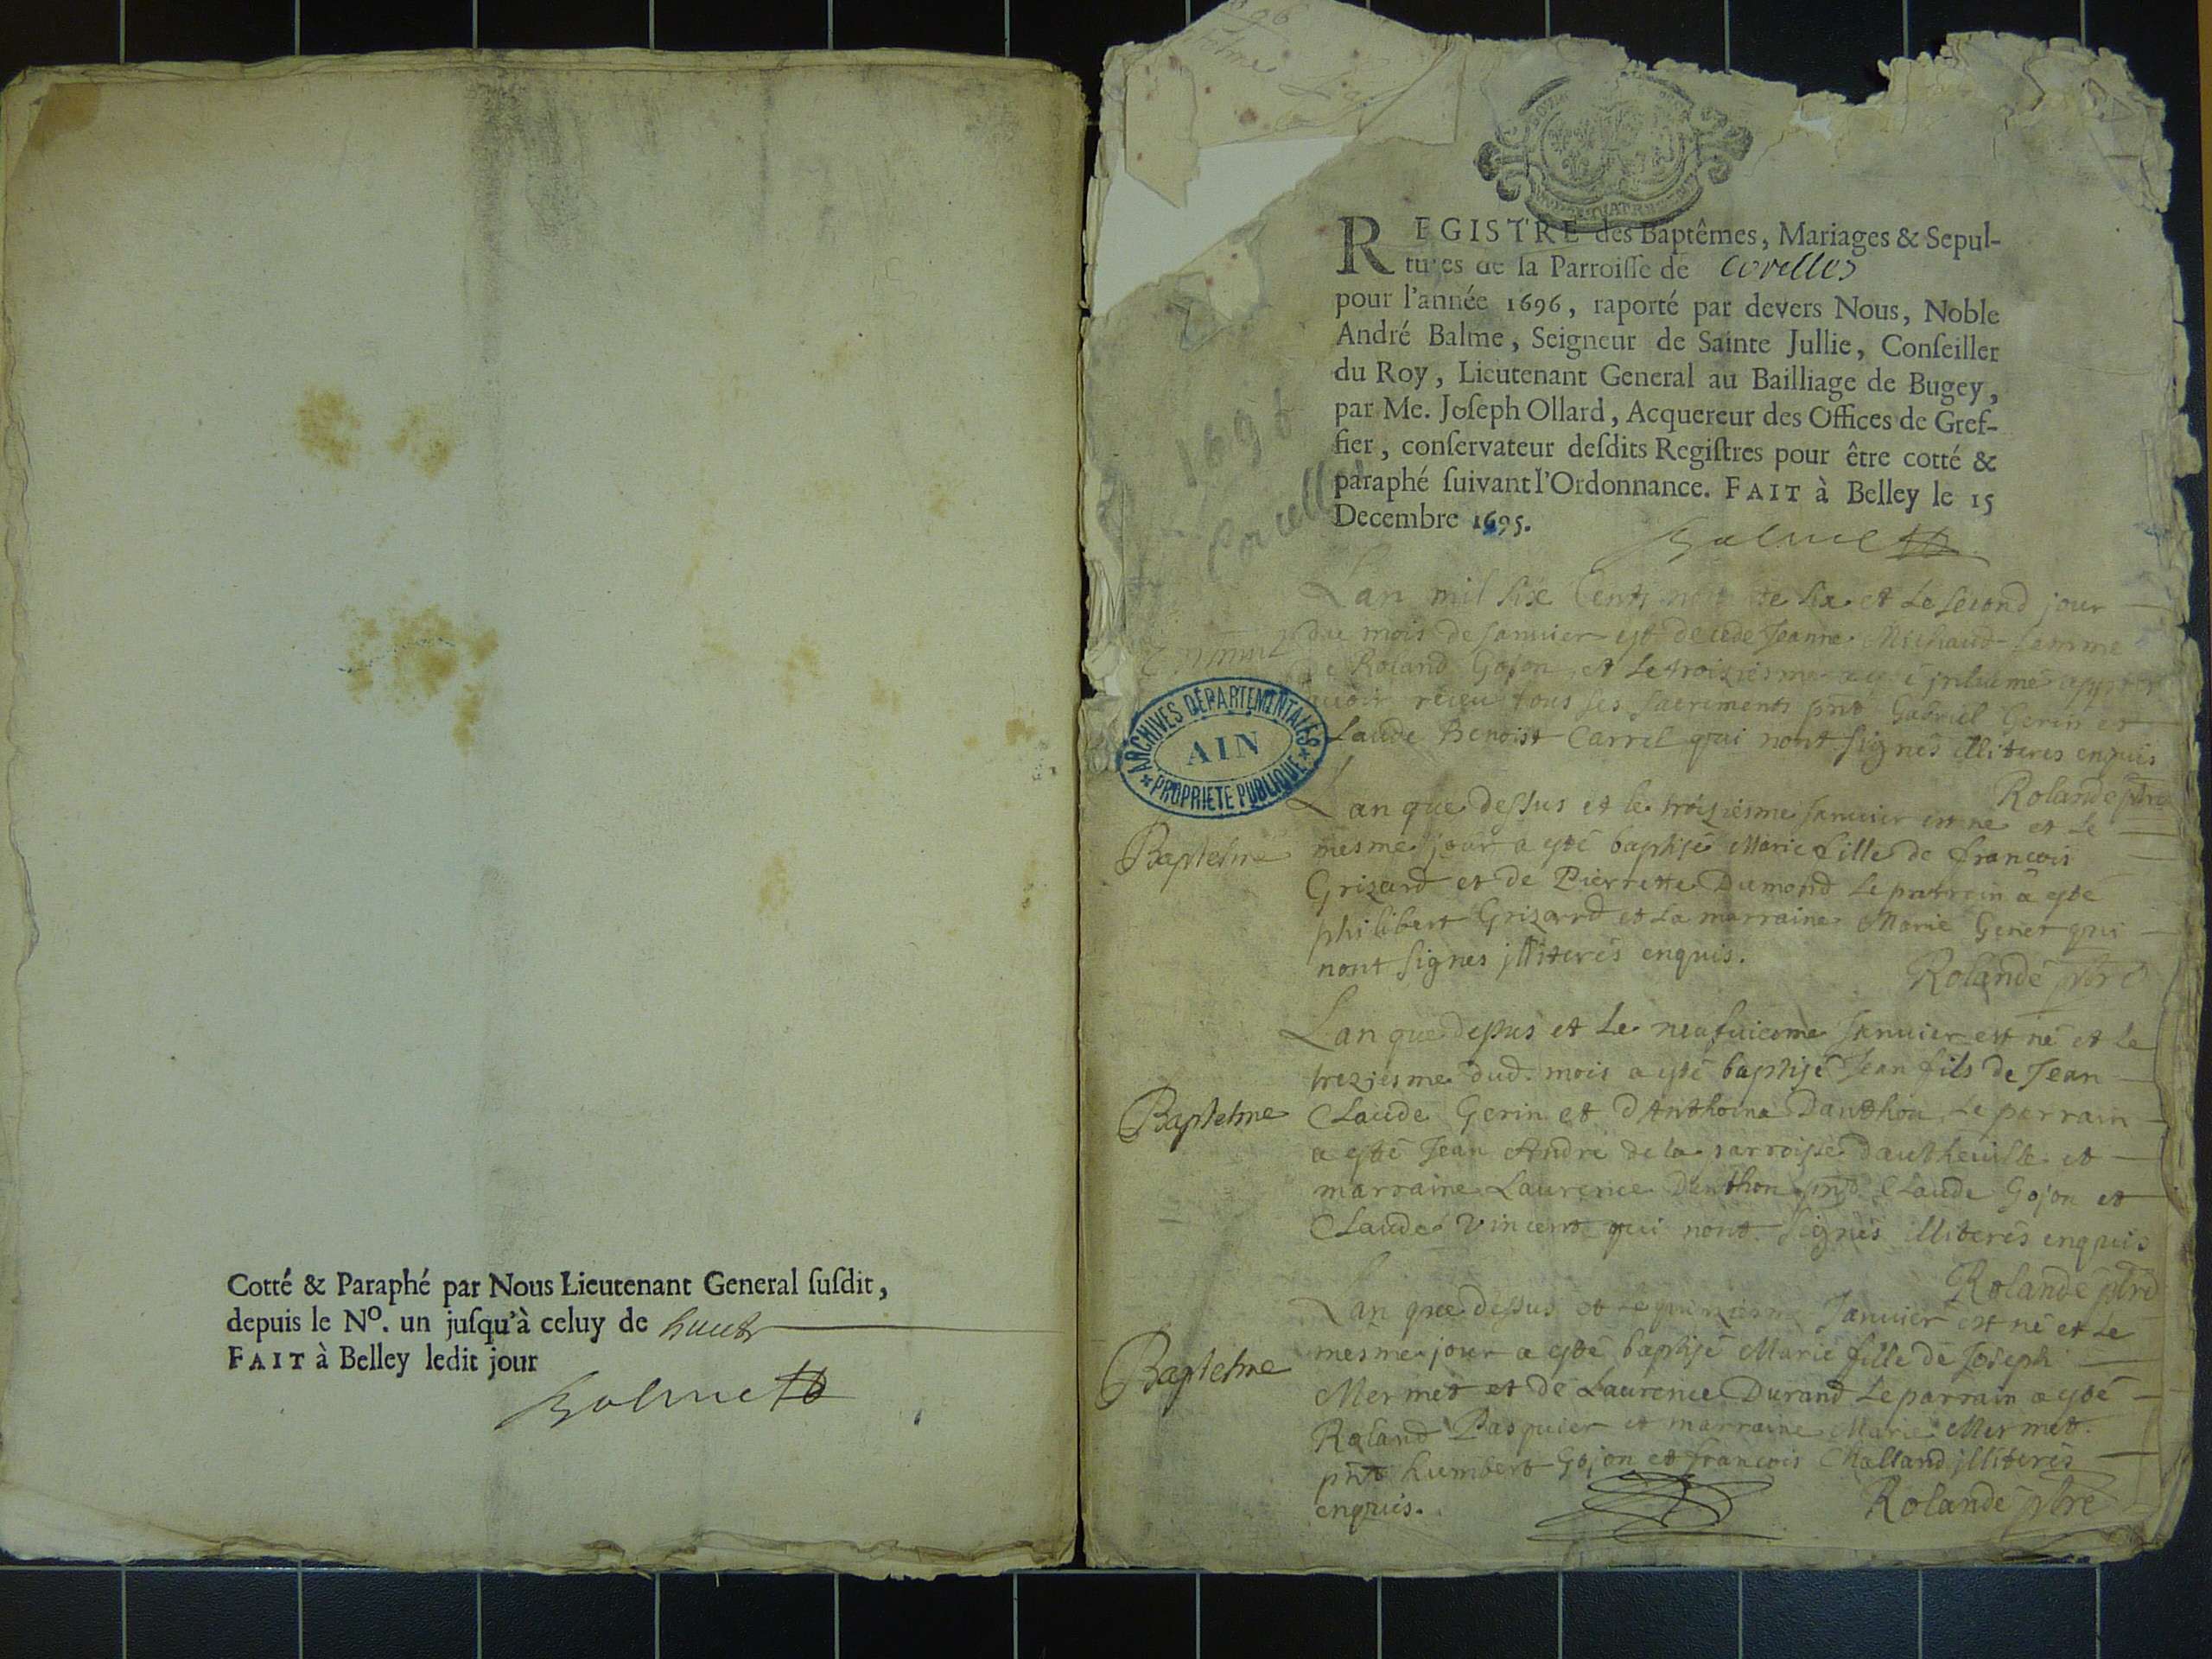 Cotté & Paraphé par Nous Lieutenant General susdit,
depuis le N°. un jusqu'à celuy de huict
FAIT à Belley ledit jour
Balme
REGISTRE des Baptêmes, Mariages & Sepul-
tures de la Parroisse de Corelles
pour l'année 1696, raporté par devers Nous, Noble
André Balme, Seigneur de Sainte Jullie, Conseiller
du Roy, Lieutenant General au Bailliage de Bugey,
par Me. Joseph Ollard, Acquereur des Offices de Gref-
fier, conservateur desdits Registres pour être cotté &
paraphé suivant l'Ordonnance. FAIT à Belley le 15
Decembre 1695.
1696
Corcelles
Balme
Lan mil six Cents nonante six et le second jour
du mois de Januier est decede Jeanne Michaud femme
de Roland Gojon et le troiziesme a esté jnhumé appres
auoir receu tous ses sacrements pnt Gabriel Gerin et
Claude Benoist Carrel qui nont signés illiteres enquis
Rolande ptre
ARCHIVES DÉPARTEMENTALES
AIN
PROPRIETE PUBLIQUE
Baptesme
Lan que dessus et le troiziesme Januier est ne et le
mesme jour a esté baptisé Marie fille de francois
Grizard et de Pierrette Dumond le parrein a esté
philibert Grizard et la marraine Marie Genet qui
nont signes jlliterés enquis.
Rolande ptre
Baptesme
Lan que dessus et le neufuiesme Januier est né et le
treziesme dud. mois a esté baptisé Jean fils de Jean
Claude Gerin et dAnthoina Danthon le parrain
a esté Jean André de la parroisse dautheuille et
marraine Laurence Danthon pnt Claude Gojon et
Claude Vincent qui nont signés illiterés enquis
Rolande ptre
Baptesme
Lan que dessus et le quinziesme Januier est né et le
mesme jour a esté baptisé Marie fille de Joseph
Mermet et de Laurence Durand le parrain a esté
Roland Pasquier et marraine Marie Mermet.
pnt humbert Gojon et francois Challand jlliterés
enquis.
Rolande ptre